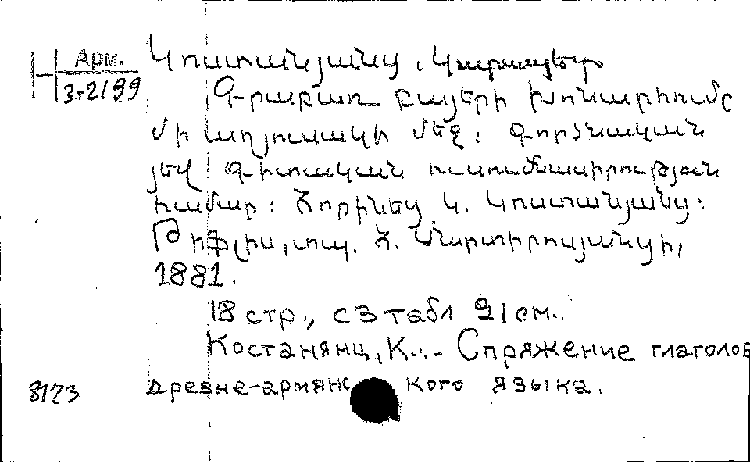 Н Арм. 3-2199
Կոստանյանց, Կարապետ
Գրաբառ բայերի խոնարհումը
մի աղյուսակի մեջ: Գործնական
յեվ գիտական ուսումնասիրության
համար: Հորինեց Կ. Կոստանյանց:
Թիֆլիս, տպ. Հ. Մարտիրոսյանցի,
1881.
18 стр., с 3 табл 21 см.
Костанянц, К. - Спряжение глаголов
8173 древне-армянского языка.